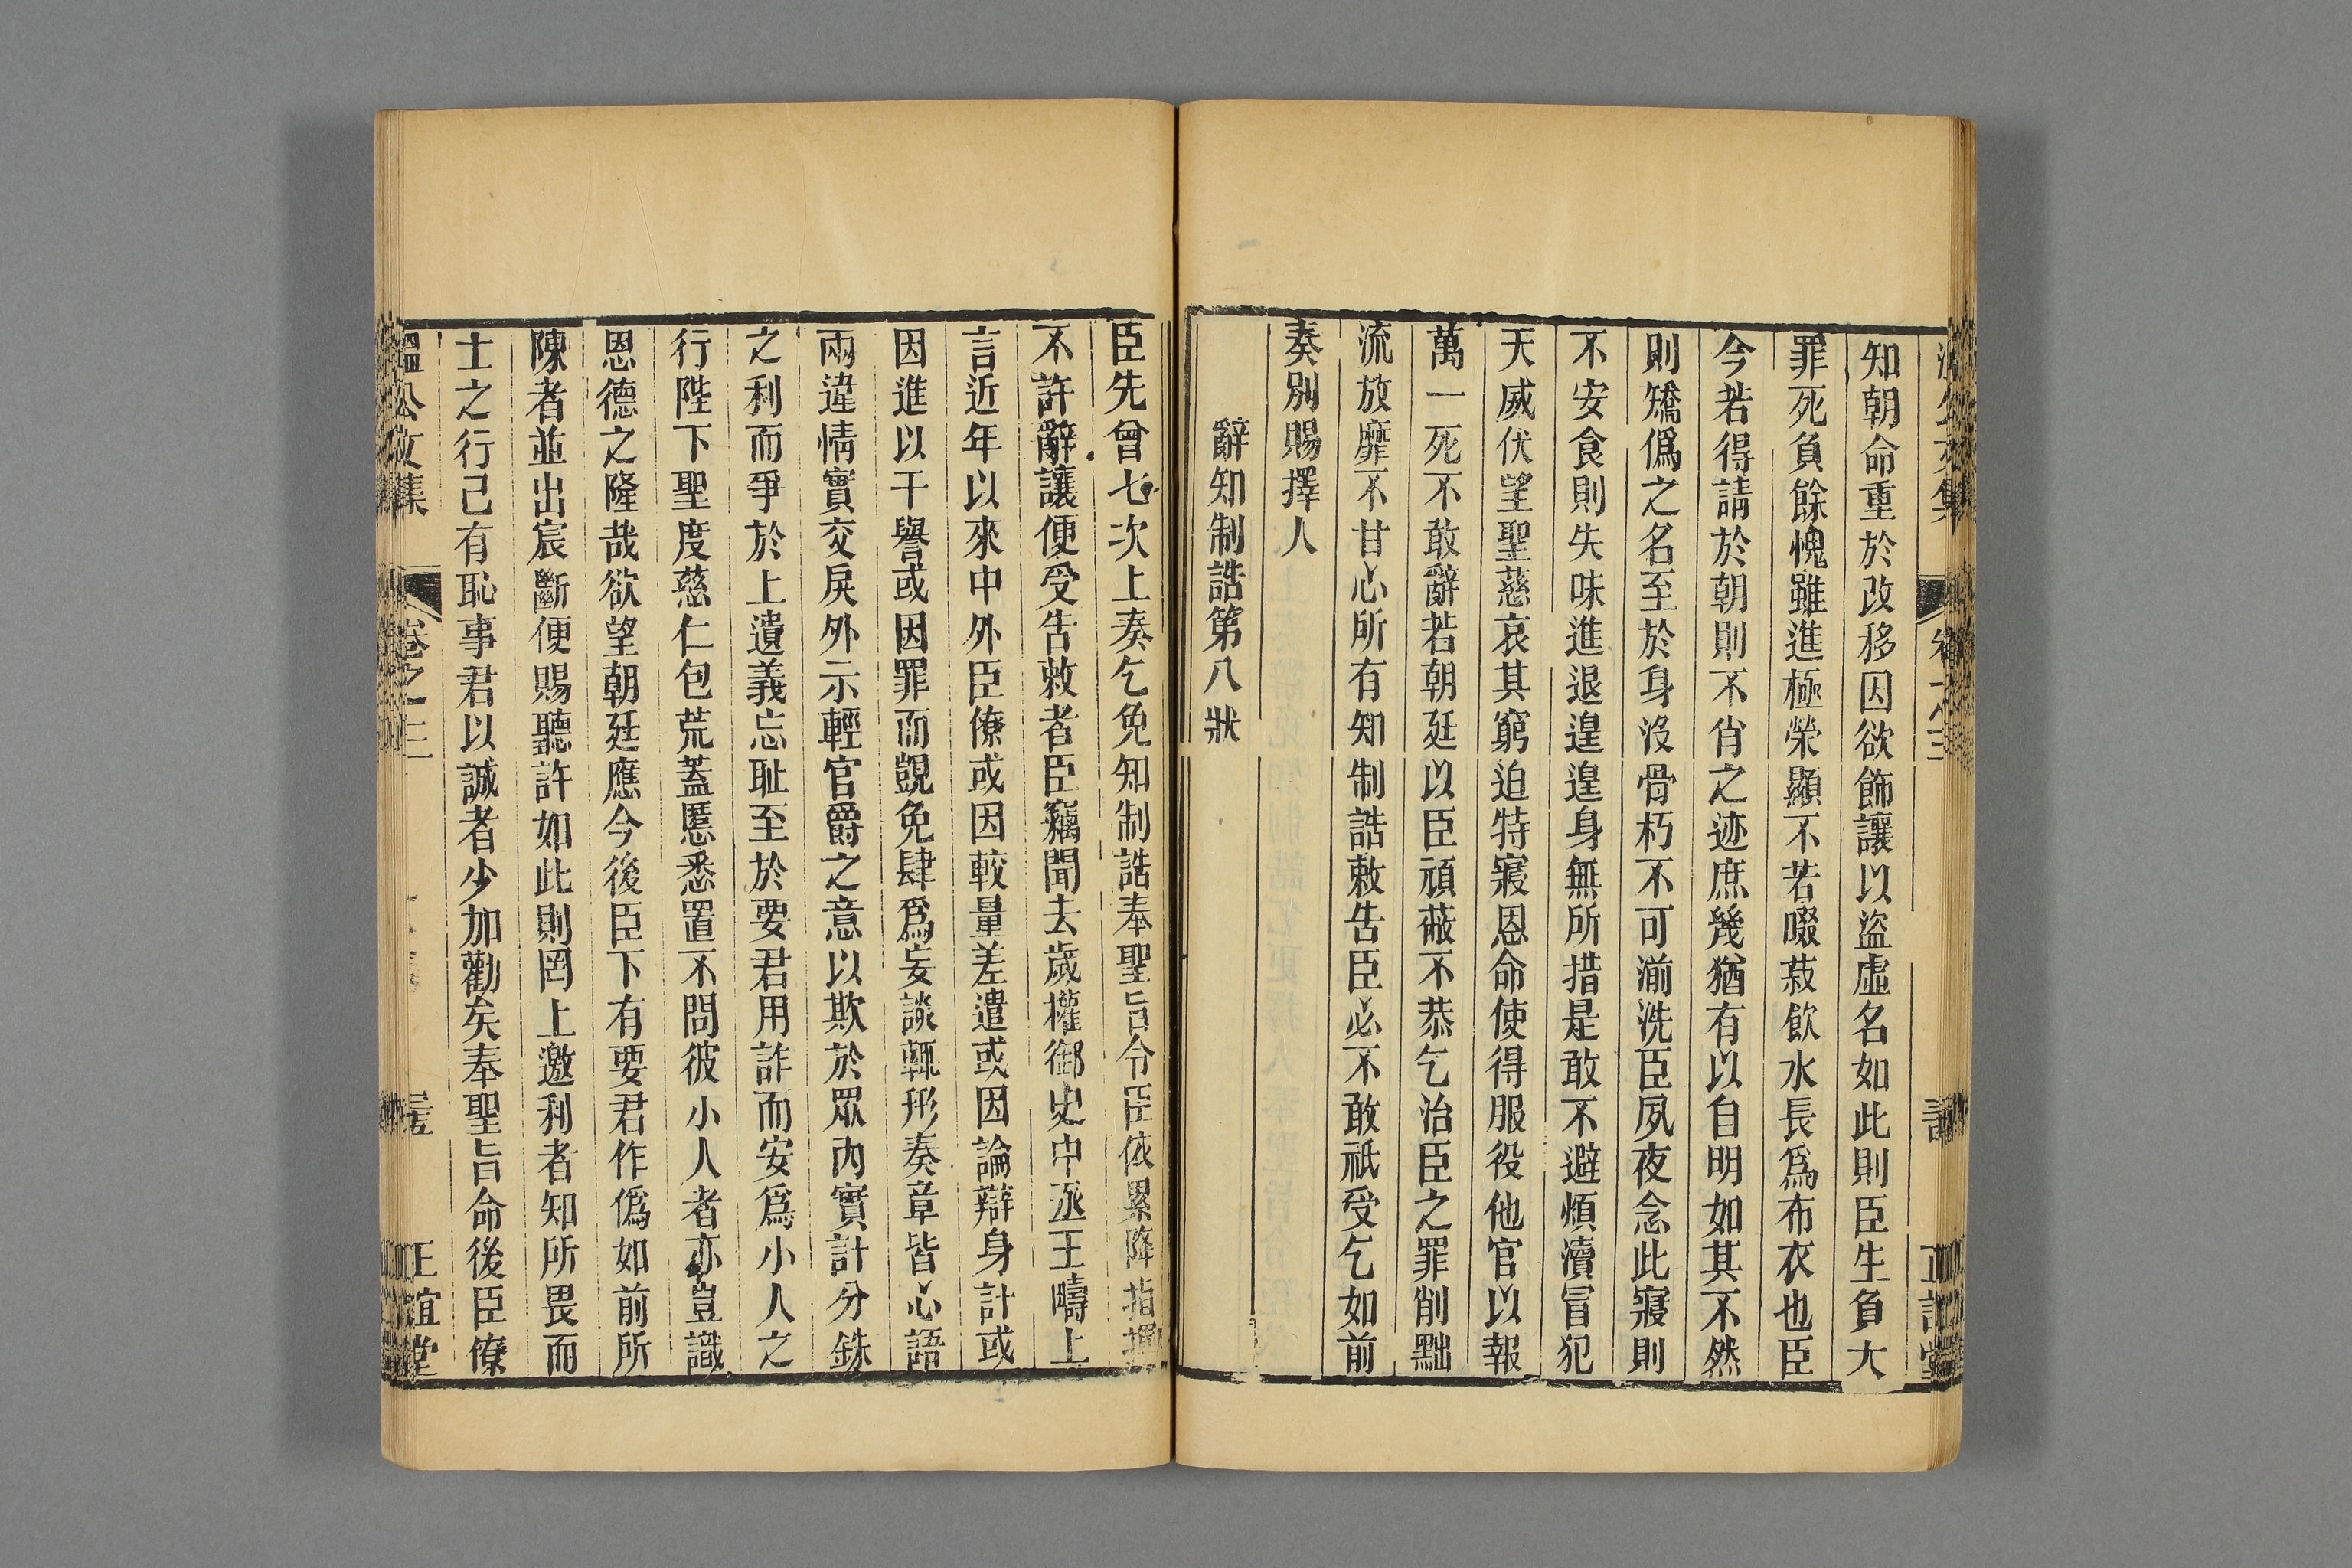 知朝命重於改移因欲飾讓以盜虛名如此則臣生負大
罪死負餘愧雖進極榮顯不若啜菽飲水長爲布衣也臣
今若得請於朝則不肖之迹庶幾猶有以自明如其不然
則矯僞之名至於身沒骨朽不可湔洗臣夙夜念此寢則
不安食則失味進退遑遑身無所措是敢不避煩瀆冒犯
天威伏望聖慈哀其窮迫特寢恩命使得服役他官以報
萬一死不敢辭若朝廷以臣頑蔽不恭乞治臣之罪削黜
流放靡不甘心所有知制誥敕告臣必不敢祇受乞如前
奏別賜擇人
辭知制誥第八狀
臣先曾七次上奏乞免知制誥奉聖旨令臣依累降指揮
不許辭讓便受告敕者臣竊聞去歲權御史中丞王疇上
言近年以來中外臣僚或因較量差遣或因論辯身計或
因進以干譽或因罪而覬免肆爲妄談輒形奏章皆心語
兩違情實交戾外示輕官爵之意以欺於眾內實計分銖
之利而爭於上遺義忘耻至於要君用詐而安爲小人之
行陛下聖度慈仁包荒蓋慝悉置不問彼小人者亦豈識
恩德之隆哉欲望朝廷應今後臣下有要君作僞如前所
陳者並出宸斷便賜聽許如此則罔上邀利者知所畏而
士之行己有恥事君以誠者少加勸矣奉聖旨命後臣僚
溫公文集 卷之三 正誼堂